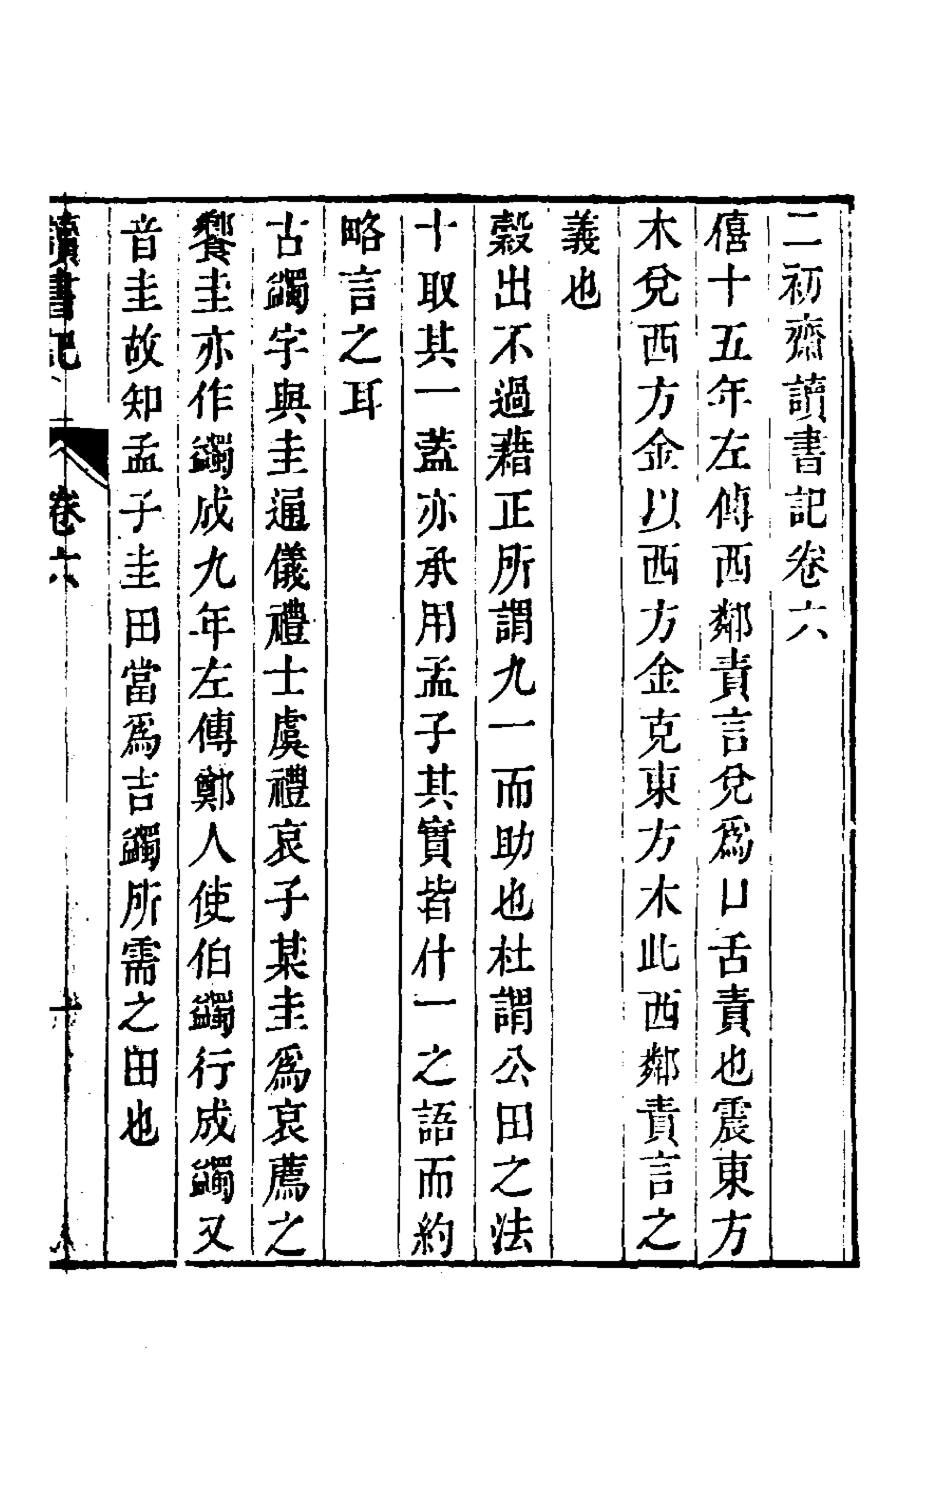 二初齋讀書記卷六
僖十五年左傳西鄰責言兌爲口舌責也震東方
木兌西方金以西方金克東方木此西鄰責言之
義也
穀出不過藉正所謂九一而助也杜謂公田之法
十取其一蓋亦承用孟子其實皆什一之語而約
略言之耳
古蠲字與圭通儀禮士虞禮哀子某圭爲哀薦之
饗圭亦作蠲成九年左傳鄭人使伯蠲行成蠲又
音圭故知孟子圭田當爲吉蠲所需之田也
讀書記
卷六